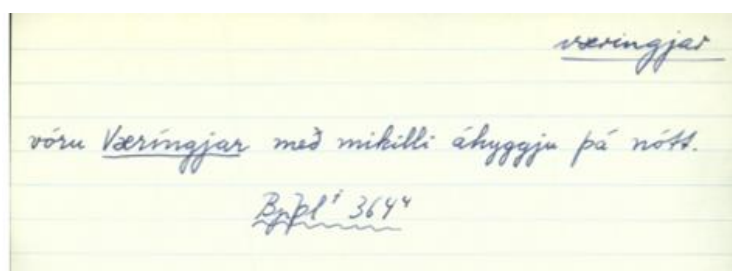 væringjar
vóru Væríngjar með mikilli áhyggju þá nótt.
BpÞpl¹ 364⁴